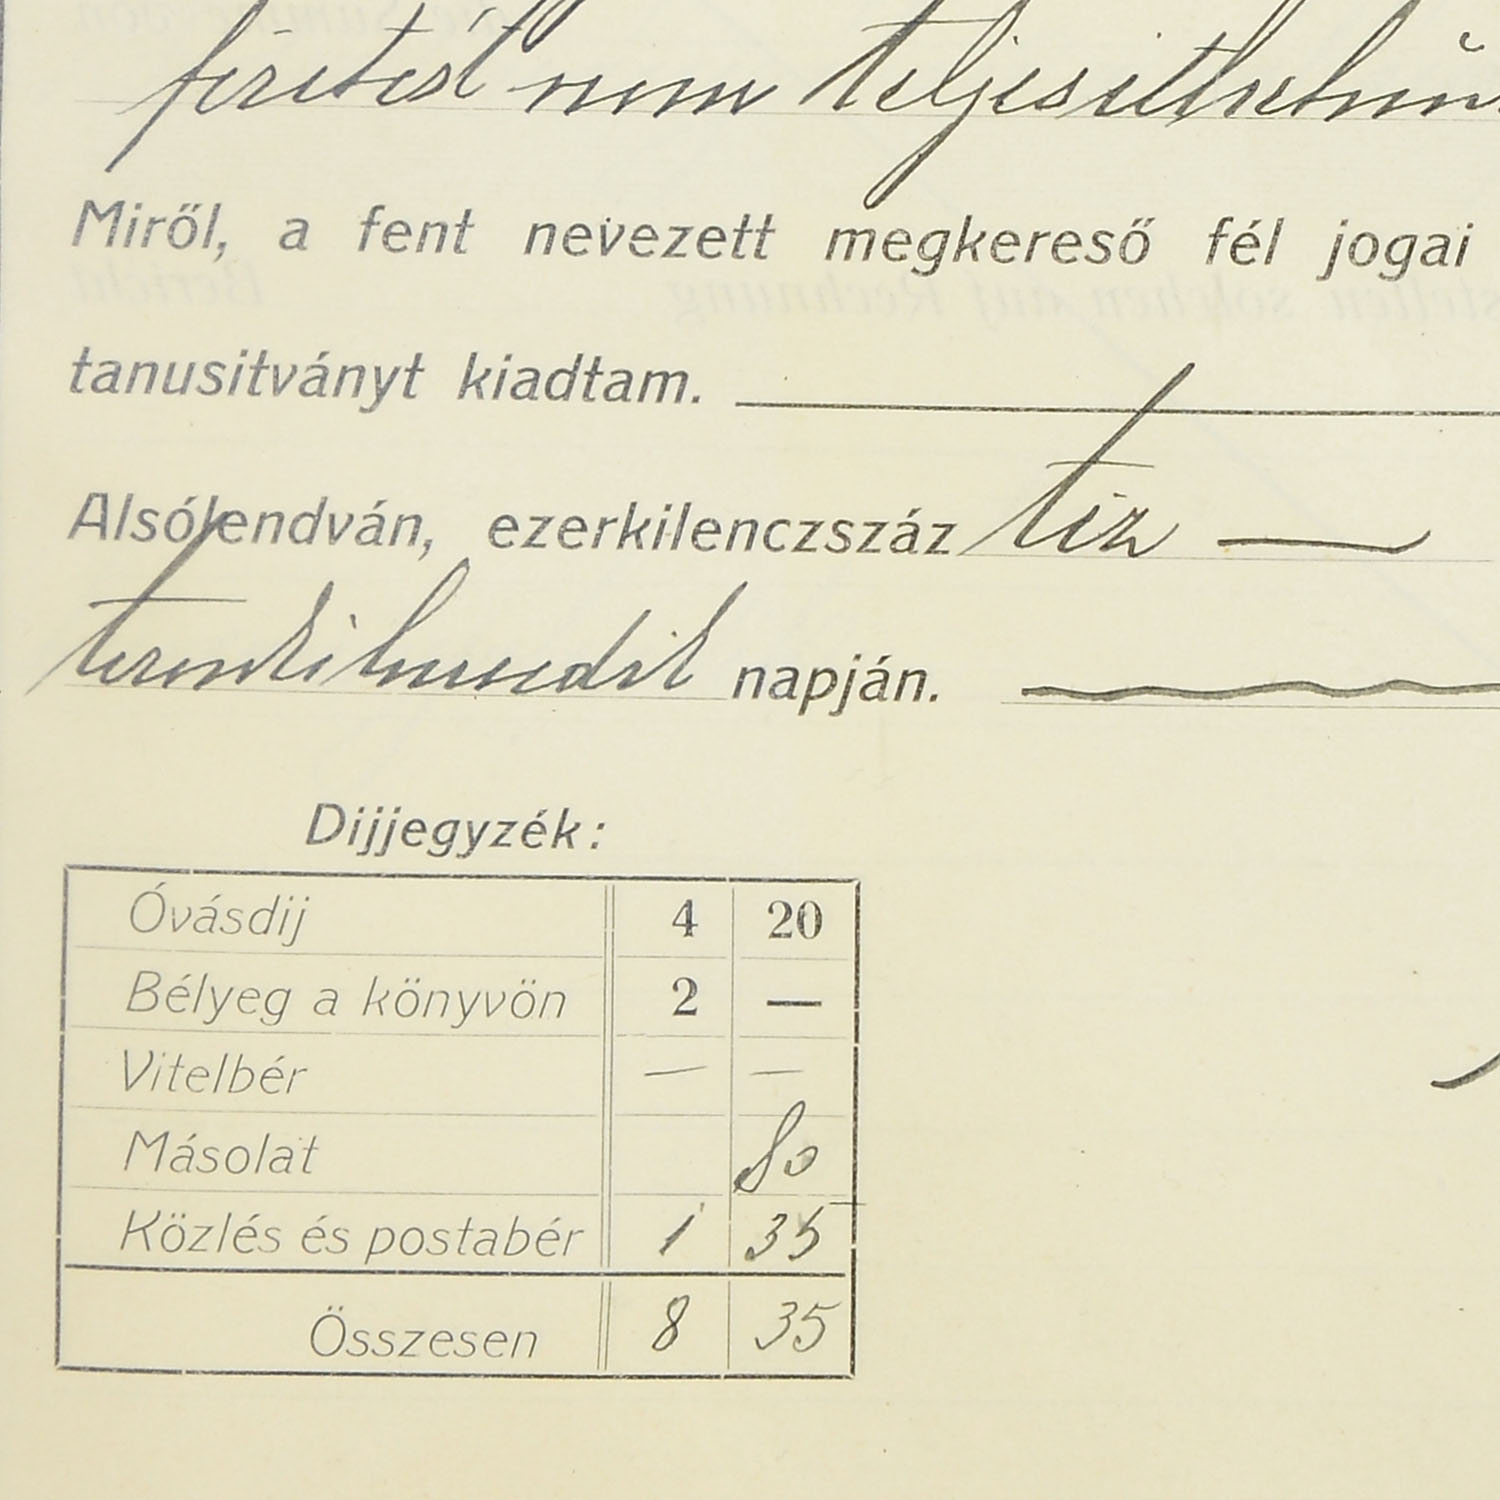 fizetést nem teljesíthetném
Miről, a fent nevezett megkereső fél jogai
tanusitványt kiadtam.
Alsólendván, ezerkilenczszáz tiz
napján.
Dijjegyzék:
Óvásdij 4 20
Bélyeg a könyvön 2 —
Vitelbér — —
Másolat 80
Közlés és postabér 1 35
Összesen 8 35